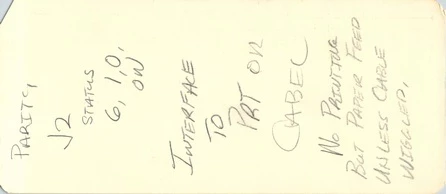 PARITY,
J2
STATUS
6, 1, 0,
ON
INTERFACE
TO
PRT OR
LABEL
NO PRINTING
BUT PAPER FEED
UNLESS CABLE
WIGGLED.